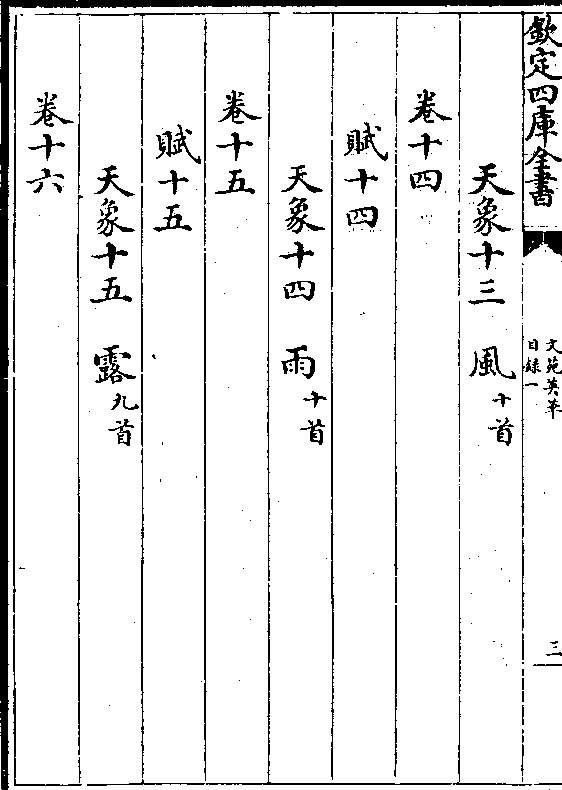 欽定四庫全書
文苑英華
目録一
三
天象十三 風十首
卷十四
賦十四
天象十四 雨十首
卷十五
賦十五
天象十五 露九首
卷十六